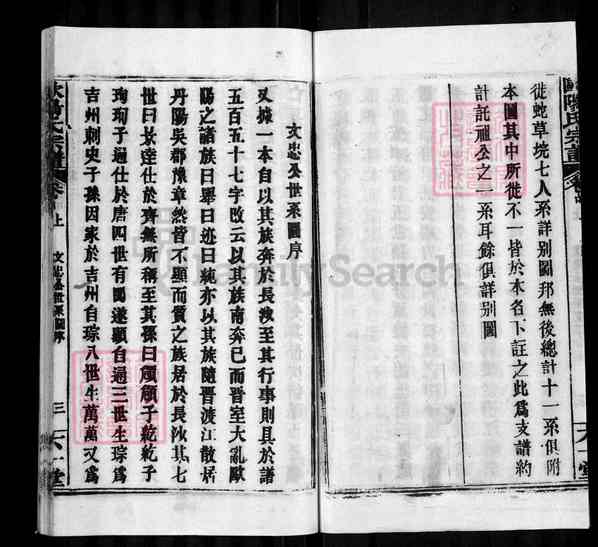 徙蛇草垸七人系詳别圖邦無後總計十一系俱附
本圖其中所徙不一皆於本名下註之此爲支譜約
計託禰公之一系耳餘俱詳别圖
文忠公世系圖序
又據一本自以其族奔於長沙至其行事則具於譜
五百五十七字改云以其族南奔已而晉室大亂歐
陽之諸族曰舉曰述曰統亦以其族隨晋渡江散居
丹陽吳郡豫章然皆不顯而質之族居於長沙其七
世曰景達仕於齊無所稱至其孫曰頠頠子紇紇子
詢詢子通仕於唐四世有聞遂顯自通三世生琮爲
吉州刺史子孫因家於吉州自琮八世生萬萬又爲
歐陽氏宗譜
上
文忠公世系圖序
三
六一堂
歐陽氏宗譜
FamilySearch